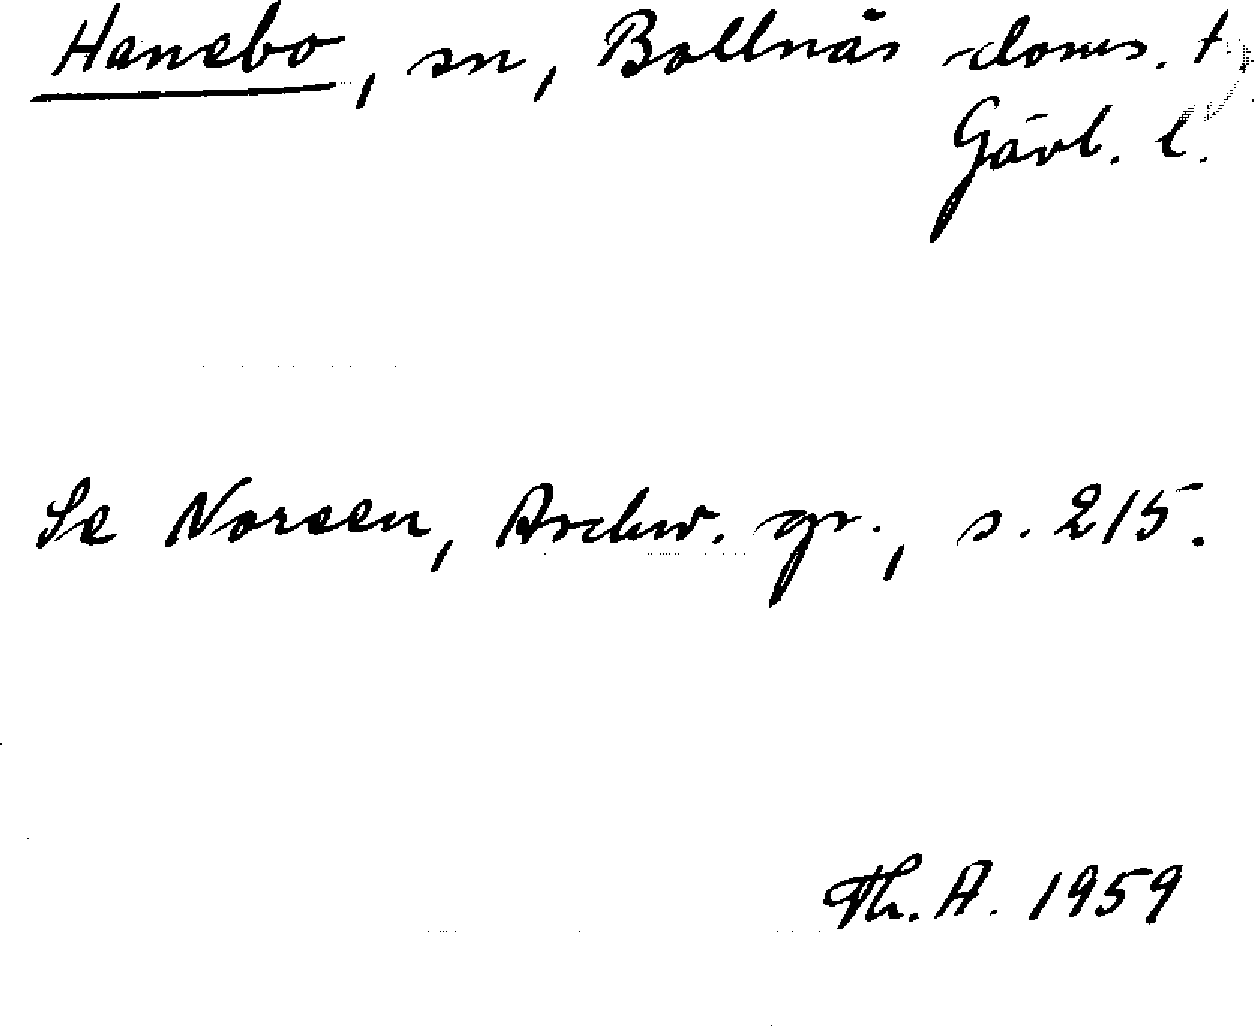 Hanebo, sn, Bollnäs doms.
Gävl. l.
Se Noreen, Archiv. gr., s. 215.
Th. A. 1959